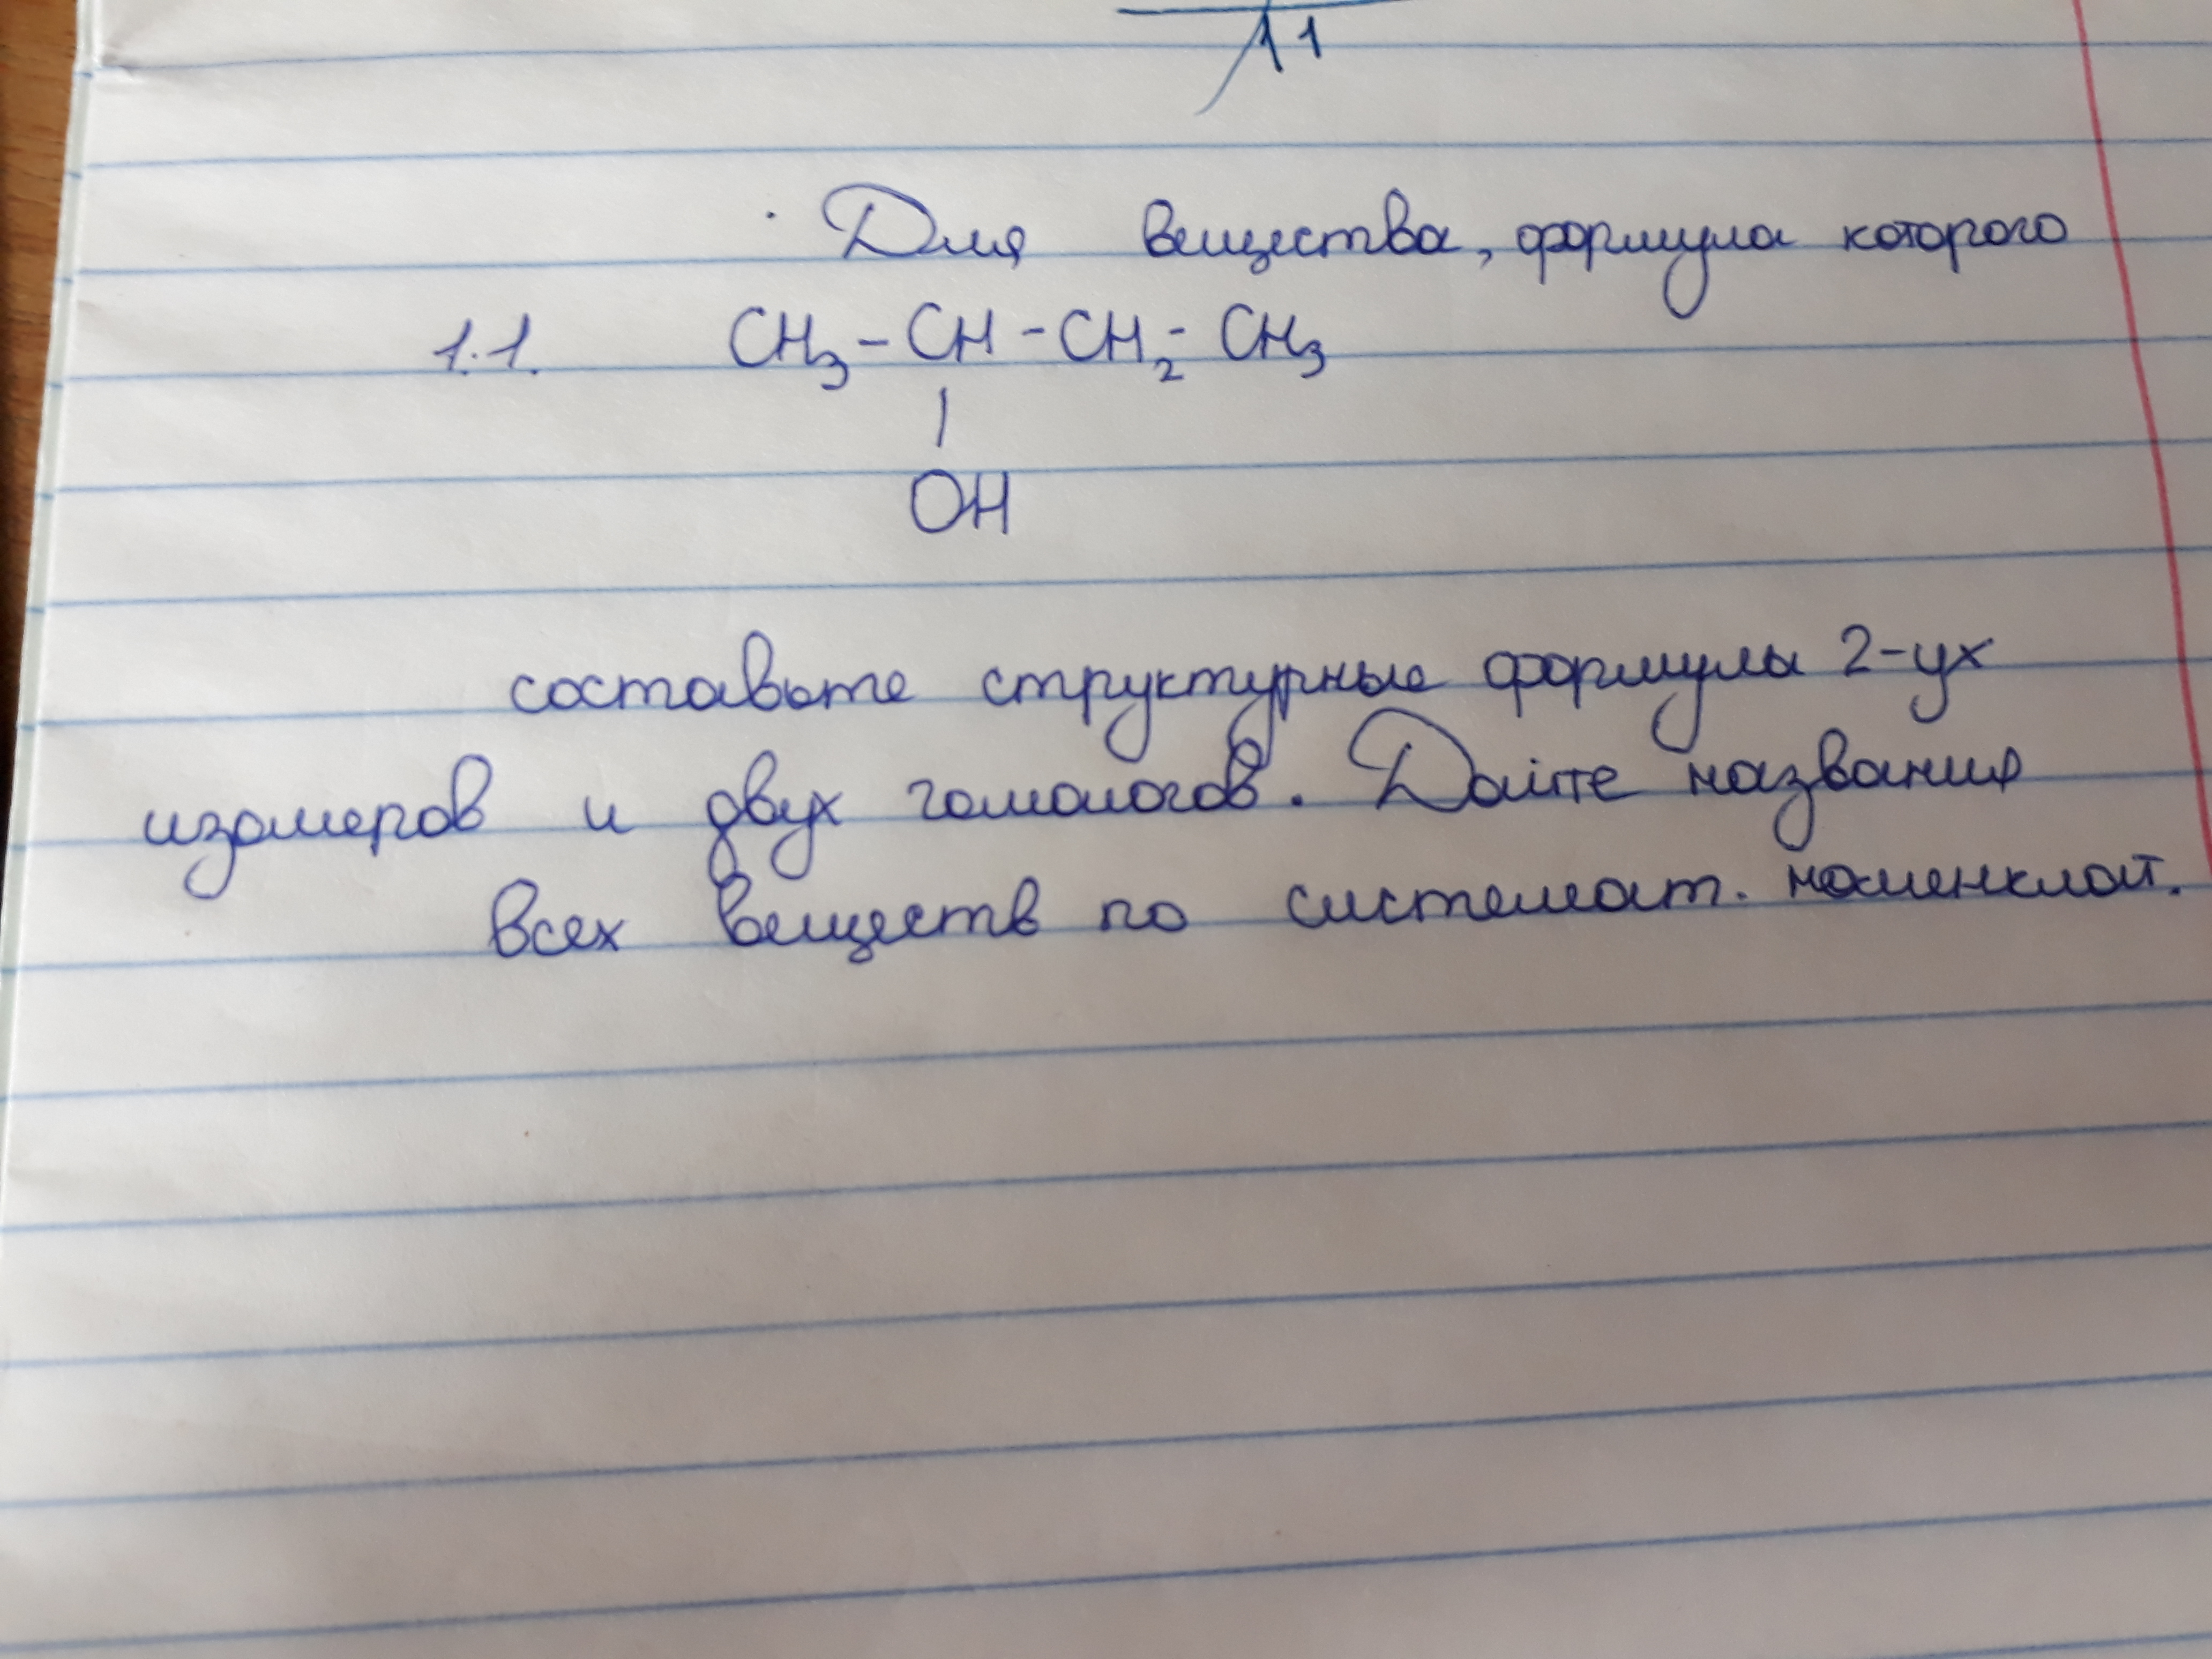 11
Для вещества, формула которого
1.1. CH₃ – CH - CH₂ - CH₃
|
OH
составьте структурные формулы 2-ух
изомеров и двух гомологов. Дайте названия
всех веществ по системат. номенклат.